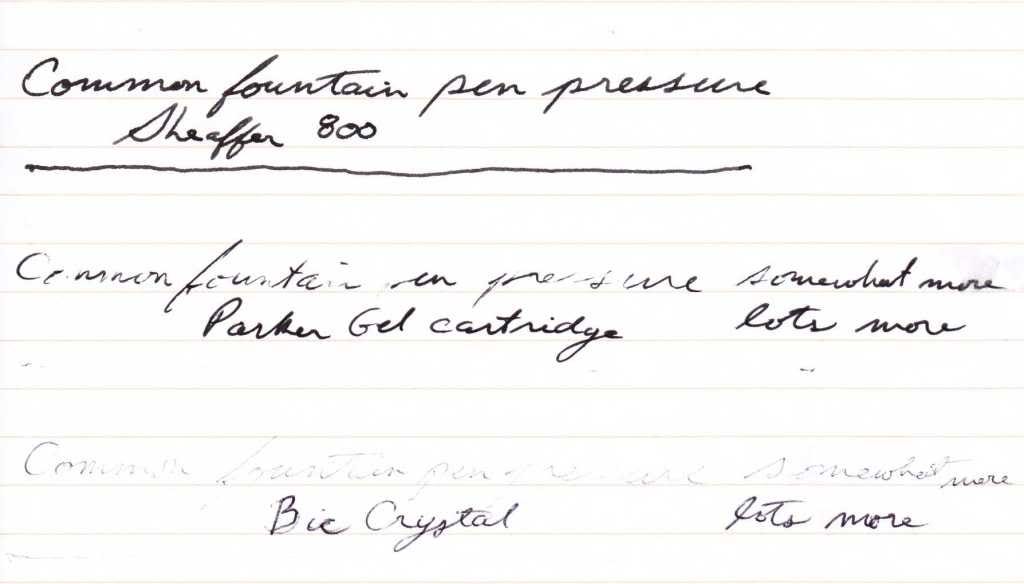 Common fountain pen pressure
Sheaffer 800
Common fountain pen pressure somewhat more
Parker Gel cartridge lots more
Common fountain pen pressure somewhat more
Bic Crystal lots more